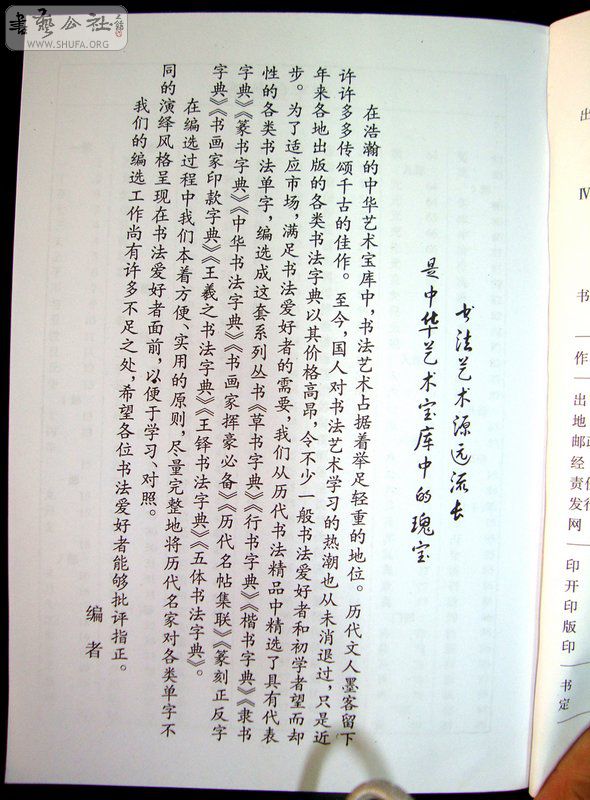 書艺公社
WWW.SHUFA.ORG
书法艺术源远流长
是中华艺术宝库中的瑰宝
在浩瀚的中华艺术宝库中,书法艺术占据着举足轻重的地位。历代文人墨客留下
许许多多传颂千古的佳作。至今,国人对书法艺术学习的热潮也从未消退过,只是近
年来各地出版的各类书法字典以其价格高昂,令不少一般书法爱好者和初学者望而却
步。为了适应市场,满足书法爱好者的需要,我们从历代书法精品中精选了具有代表
性的各类书法单字,编选成这套系列丛书《草书字典》《行书字典》《楷书字典》《隶书
字典》《篆书字典》《中华书法字典》《书画家挥豪必备》《历代名帖集联》《篆刻正反字
字典》《书画家印款字典》《王羲之书法字典》《王铎书法字典》《五体书法字典》。
在编选过程中我们本着方便、实用的原则,尽量完整地将历代名家对各类单字不
同的演绎风格呈现在书法爱好者面前,以便于学习、对照。
我们的编选工作尚有许多不足之处,希望各位书法爱好者能够批评指正。
编者
出
Ⅳ
书
作
出
地
邮
经
责
发
网
印
开
印
版
印
书
定